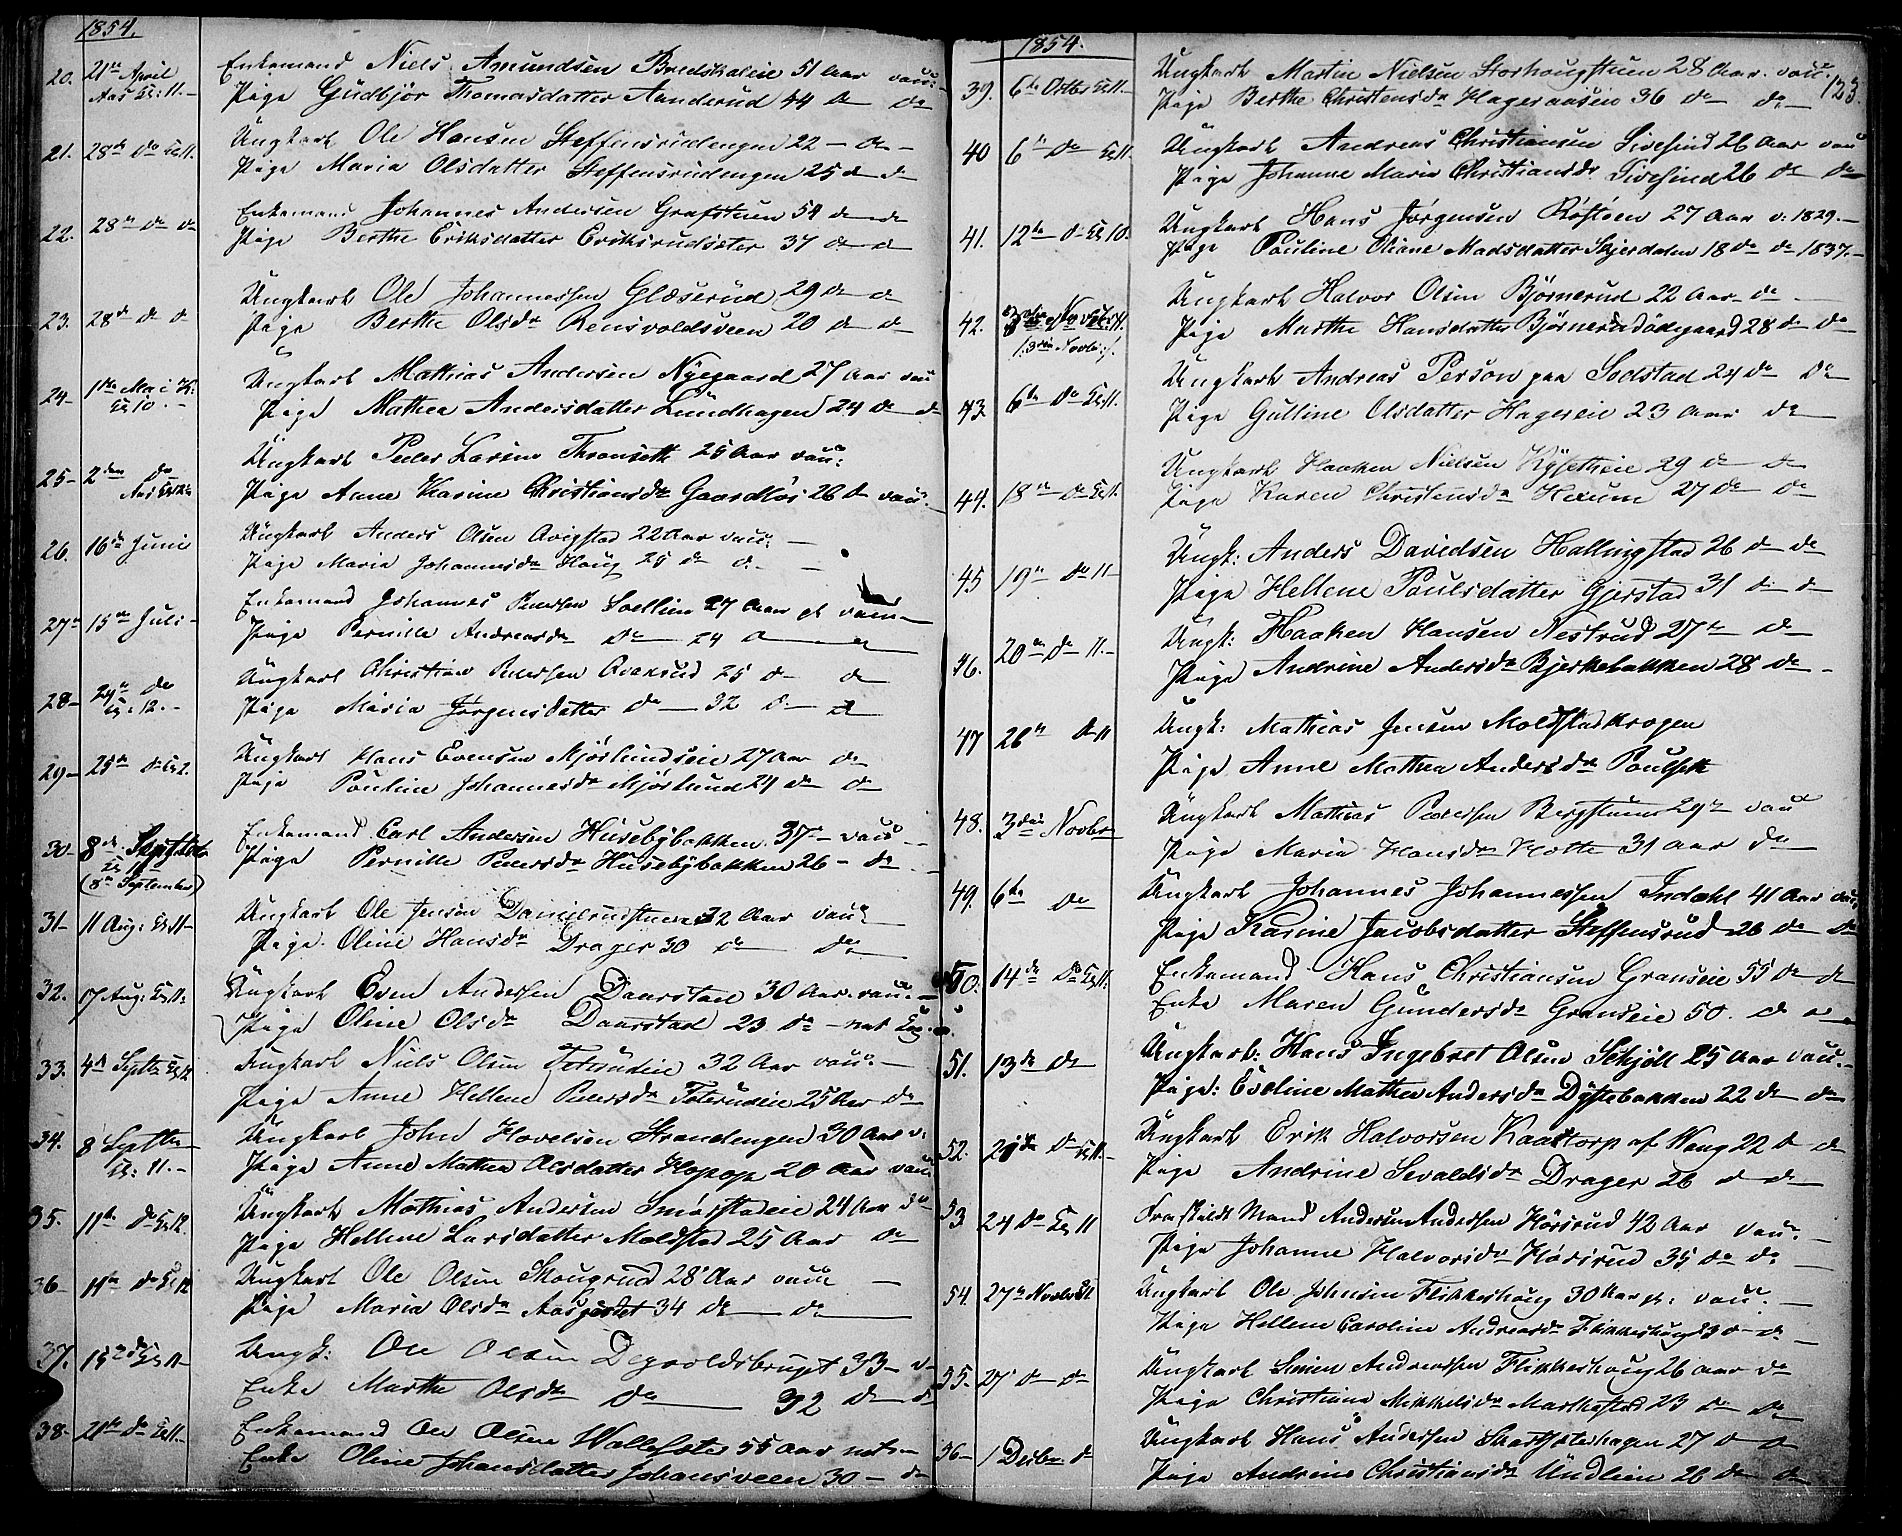 1854.
20. 21de April Enkemand Niels Amundsen Bredskaleie 51 Aar vacc.
Aas Kl: 11.- Pige Gudbjør Thomasdatter Aanderud 44 do do
21. 28de do Kl 11. Ungkarl Ole Hansen Steffensrudengen 22 - do -
Pige Maria Olsdatter Steffensrudengen 25 do do
22. 28de do do Enkemand Johannes Andersen Grafstuen 54 do do
Pige Berthe Eriksdatter Eriksrudsæter 37 do do
23. 28de do do Ungkarl Ole Johannessen Glæserud 29 do do
Pige Berthe Olsdr Rensvoldsveen 20 do do
24- 1ste Mai K: Ungkarl Mathias Andersen Nyegaard 27 Aar vac
Kl 10.- Pige Mathea Andersdatter Lundhagen 24 do do
25- 2den do Ungkarl Peder Larsen Thronseth 25 Aar vacc:
Pige Anne Karine Christiansdr Gaardløs 26 do vacc.
26. 16de Juni Ungkarl Anders Olsen Qvigstad 22 Aar vacc: -
Pige Maria Johannesdr Haug 25 do do -
27- 15de Juli - Enkemand Johannes Pedersen 27 Aar vacc
Pige Pernille Andreasdr do 24
28- 24de do Ungkarl Christian Pedersen 25 do do
Kl: 12.- Pige Maria Jørgensdatter do 32 do
29- 25de do Kl 2. Ungkarl Hans Evensen Mjørlundseie 27 Aar do
Pige Pauline Johannesdr Mjørlund 24 do do
30- 8de Septbr Enkemand Carl Andersen Husebybakken 37 - vacc
Kl 11 Pige Pernille Pedersdr Husebybakken 26 - do
(8de September)
31- 11 Aug: Kl 11- Ungkarl Ole Jensen Danielrudstuen 32 Aar vacc
Pige. Oline Hansdr Drager 30 do do
32. 17 Aug: Kl 11. Ungkarl Even Andersen Daarstad 30 Aar. vacc. -
Pige Oline Olsdr Daarstad 23 do - nat
33. 4de Septbr Kl 12 Ungkarl Niels Olsen Foterudeie 32 Aar vacc. -
Pige Anne Hellene Pedersdr Foterudeie 25 Aar do
34. 8 Septbr Ungkarl John Hovelsen Strandengen 30 Aar v.
Kl: 11.- Pige Anne Mathea Olsdatter 20 Aar vacc
35. 11te do Kl 12. Ungkarl Mathias Andersen Smørstadeie 24 Aar do
Pige Hellene Larsdatter Moldstad 25 Aar do
36- 11te do Kl 12 Ungkarl Ole Olsen Skougrud 28 Aar vacc -
Pige Maria Olsdr Aasgjerdet 34 do do
37. 15de do Kl 11- Ungk: Ole Olsen 33 - v-
Enke Marthe Olsdr do 32 do do
38- 21de do Kl 11- Enkemand Ole Olsen Wallesæter 55 Aar nat. -
Enke Oline Johansdatter Johansveen 30 - do
1854.
123.
39. 6te Octbr Kl 11. Ungkarl Martin Nielsen Storhougstuen 28 Aar. vac.
Pige Berthe Christensdr Hageraasen 36 do do
40 6te do Kl 11. Ungkarl Andreas Christiansen Sivesind 26 Aar vac
Pige Johanne Maria Christiansdr Sivesind 26 do do
41. 12te do Kl 10. Ungkarl Hans Jørgensen Røstøen 27 Aar v: 1829.-
Pige Pauline Oliane Madsdatter Skjerdalen 18 do do 1837.-
42. Ungkarl Halvor Olsen Bjørnerud 22 Aar do -
(3die Novbr). Pige Marthe Hansdatter Bjørnerudødegaard 28 do do
43. 6te do Kl 11. Ungkarl Andreas Person paa Sodstad 24 do do
Pige Gulline Olsdatter Hagereie 23 Aar do
44. 18de do Kl 1. Ungkarl Haaken Nielsen Kysetheie 29 do do
Pige Karen Christensdr Hexum 27 do do
45 19de do 11- Ungk: Anders Davidsen Hallingstad 26 do do
Pige Hellene Poulsdatter Gjerstad 31 do do
46. 20de do 11.- Ungk: Haaken Hansen Nestrud 27 - do
Pige Andrine Andersdr Bjerkebakken 28 do -
47 26de do 11 Ungk: Mathias Jensen Moldstadkrogen
Pige Anne Mathea Andersdr Poulseth
48. 3die Novbr Ungkarl Mathias Pedersen Bergstuen 29 - vac
Pige Maria Hansdr Hotte 31 Aar do
49. 6te do Ungkarl Johannes Johannessen Indahl 41 Aar vac
Pige Karine Jacobsdatter Steffensrud 26 do do
50. 14de do Kl 11. Enkemand Hans Christiansen Granseie 55 do do
Enke Maren Gundersdr Granseie 50. do do
51. 13de do Ungkarl: Hans Ingebret Olsen Schjøll 25 Aar vac. -
Pige: Eveline Mathea Andersdr Dystebakken 22 do do
52. do Kl 11.- Ungkarl Erik Halvorsen Kaastorp af Vang 22 do do
Pige Andrine Sevaldsdr Drager 26 do do
53 24 do Kl 11 Fraskildt Mand Anders Andersen Hørsrud 42 Aar vac. -
Pige Johanne Halvorsdr Hørsrud 35 do do -
54. 27de Novbr Kl 11 Ungkarl Ole Johnsen Flikkeshoug 30 Aar vac. -
Pige Hellene Caroline Andreasdr Flikkeshoug 23 do do -
55. 27 do do Ungkarl Simen Andreassen Flikkeshoug 26 Aar do
Pige Christiane Mikkelsdr 23 do do
56- 1 Decbr do Ungkarl Hans Andersen 27 do do
Pige Andrine Christiansdr Undlien 26 do do